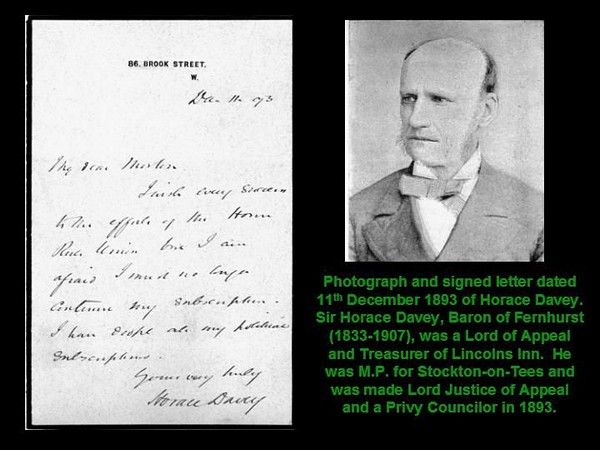 86, BROOK STREET,
W.
Dec 11 93
My dear
I wish every success
to the efforts of the Home
Rule Union but I am
afraid I must no longer
continue my subscription.
I have dropt all my political
subscriptions.
Yours very truly
Horace Davey
Photograph and signed letter dated
11th December 1893 of Horace Davey.
Sir Horace Davey, Baron of Fernhurst
(1833-1907), was a Lord of Appeal
and Treasurer of Lincolns Inn. He
was M.P. for Stockton-on-Tees and
was made Lord Justice of Appeal
and a Privy Councilor in 1893.